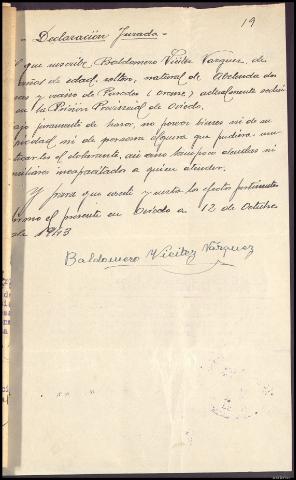 19
- Declaración Jurada -
l que suscribe Baldomero Vieitez Vázquez, de
años de edad, soltero, natural de Abelenda
y vecino de (Orense) actualmente
en la Prisión Provincial de Oviedo.
ajo juramento de honor, no poseer bienes ni de su
piedad ni de persona alguna que pudiera
el declarante, así como tampoco
incapacitados a quien atender.
Y para que conste y surta los efectos pertinentes
firmo el presente en Oviedo a 12 de Octubre
de 1943
Baldomero Vieitez Vázquez